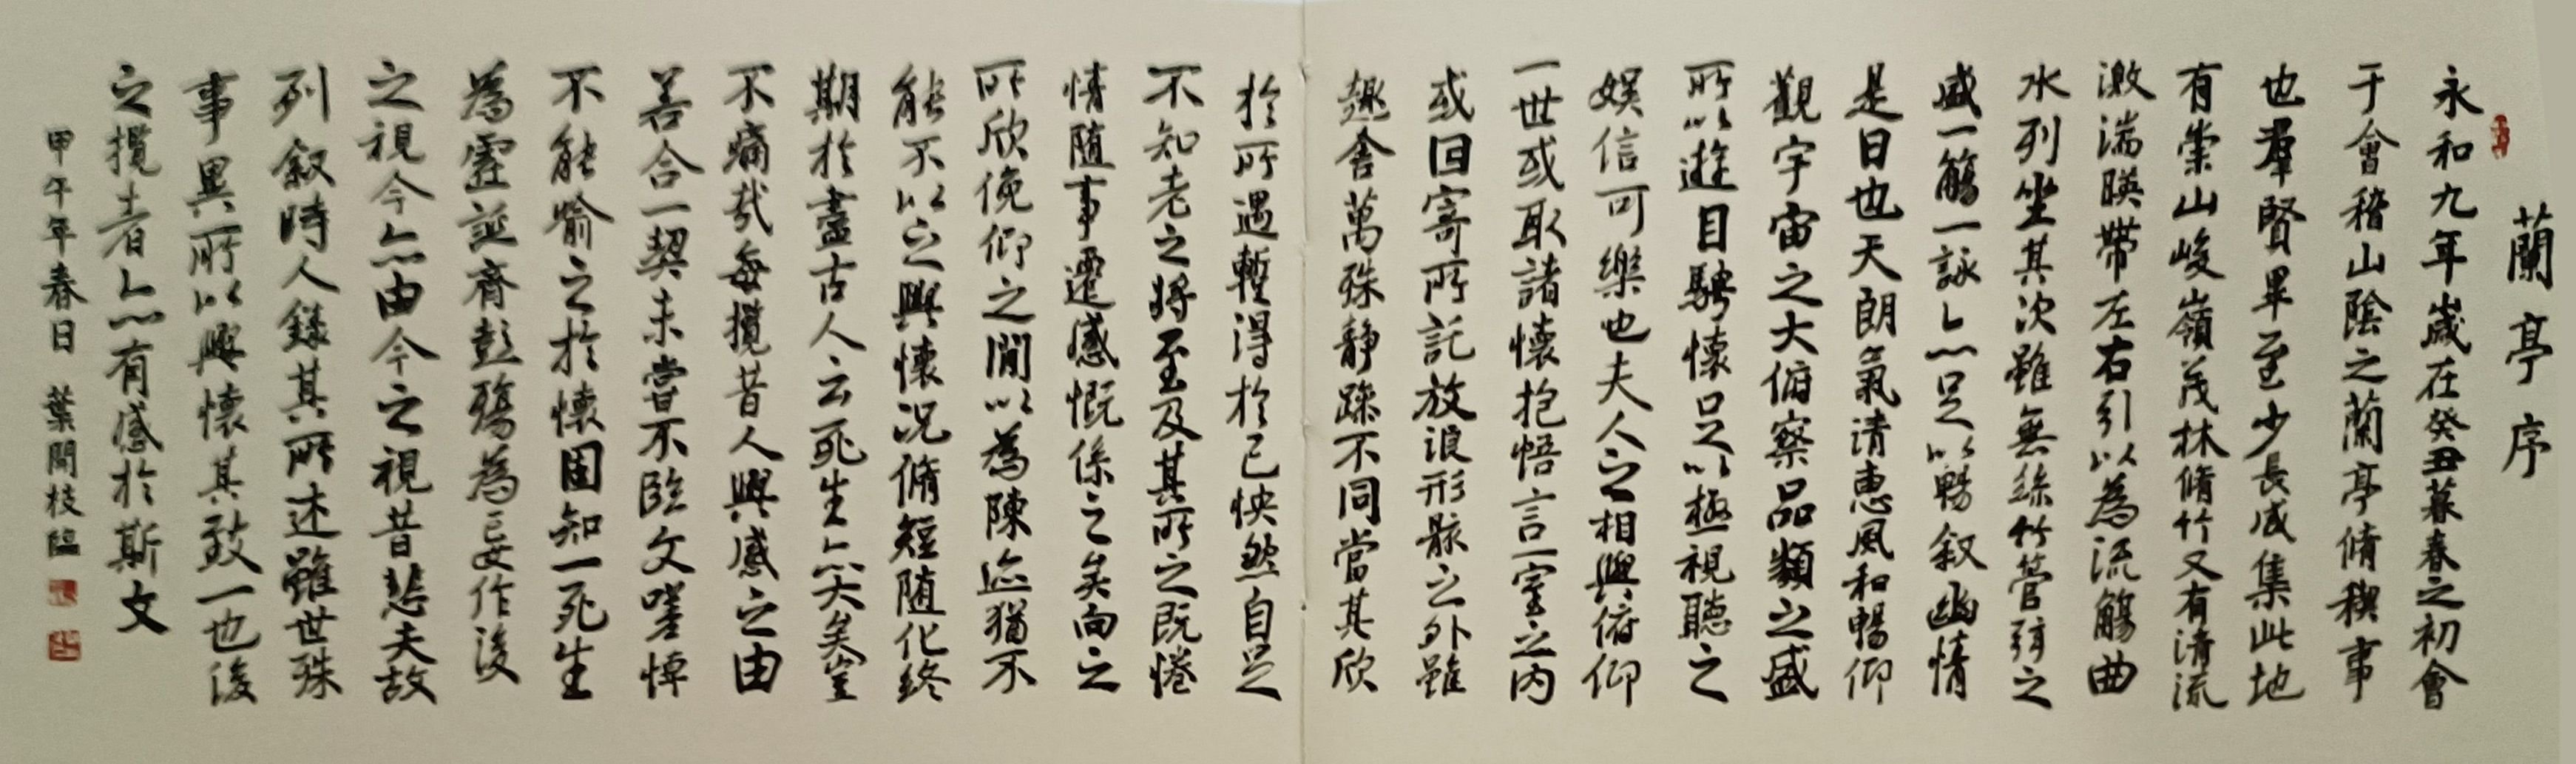 蘭亭序
永和九年歲在癸丑暮春之初會
于會稽山陰之蘭亭脩稧事
也羣賢畢至少長咸集此地
有崇山峻嶺茂林脩竹又有清流
激湍暎帶左右引以為流觴曲
水列坐其次雖無絲竹管弦之
盛一觴一詠亦足以暢叙幽情
是日也天朗氣清惠風和暢仰
觀宇宙之大俯察品類之盛
所以遊目騁懷足以極視聽之
娛信可樂也夫人之相與俯仰
一世或取諸懷抱悟言一室之內
或因寄所託放浪形骸之外雖
趣舍萬殊靜躁不同當其欣
於所遇暫得於己怏然自足
不知老之將至及其所之既惓
情随事遷感慨係之矣向之
所欣俛仰之閒以為陳迹猶不
能不以之興懷況脩短随化終
期於盡古人云死生亦大矣豈
不痛哉每攬昔人興感之由
若合一契未嘗不臨文嗟悼
不能喻之於懷固知一死生
為虛誕齊彭殤為妄作後
之視今亦由今之視昔悲夫故
列叙時人錄其所述雖世殊
事異所以興懷其致一也後
之攬者亦有感於斯文
甲午年春日 葉開枝臨